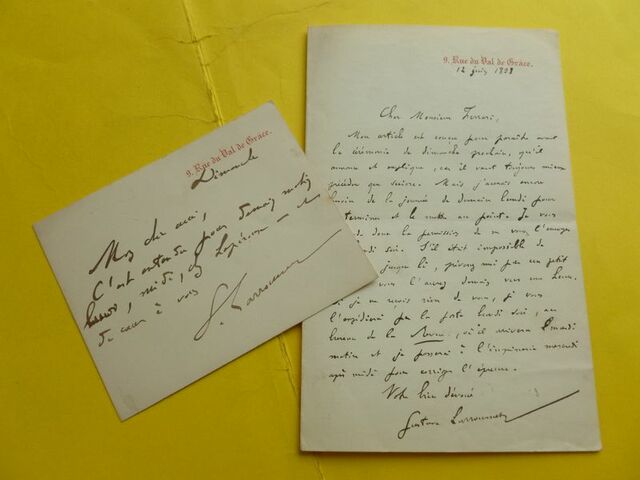 9, Rue du Val de Grâce.
Dimanche
Mon cher ami,
C'est entendu pour demain matin
lundi, midi,
de cœur à vous
G. Larroumet
9, Rue du Val de Grâce.
12 juin 1898
Cher Monsieur Ferrari,
Mon article est conçu pour paraître avant
la cérémonie de dimanche prochain, qu'il
annonce et explique, car il vaut toujours mieux
précéder que suivre. Mais j'aurais encore
besoin de la journée de demain lundi pour
terminer et le mettre au point. Je vous
donc la permission de ne vous l'envoyer
lundi soir. S'il était impossible de
jusque là, prévenez moi par un petit
vous l'aurez demain vers une heure.
Si je ne reçois rien de vous, je vous
l'expédierai par la poste lundi soir, au
bureau de la Revue, où il arrivera mardi
matin et je passerai à l'imprimerie mercredi
après midi pour corriger l'épreuve.
Votre bien dévoué
Gustave Larroumet